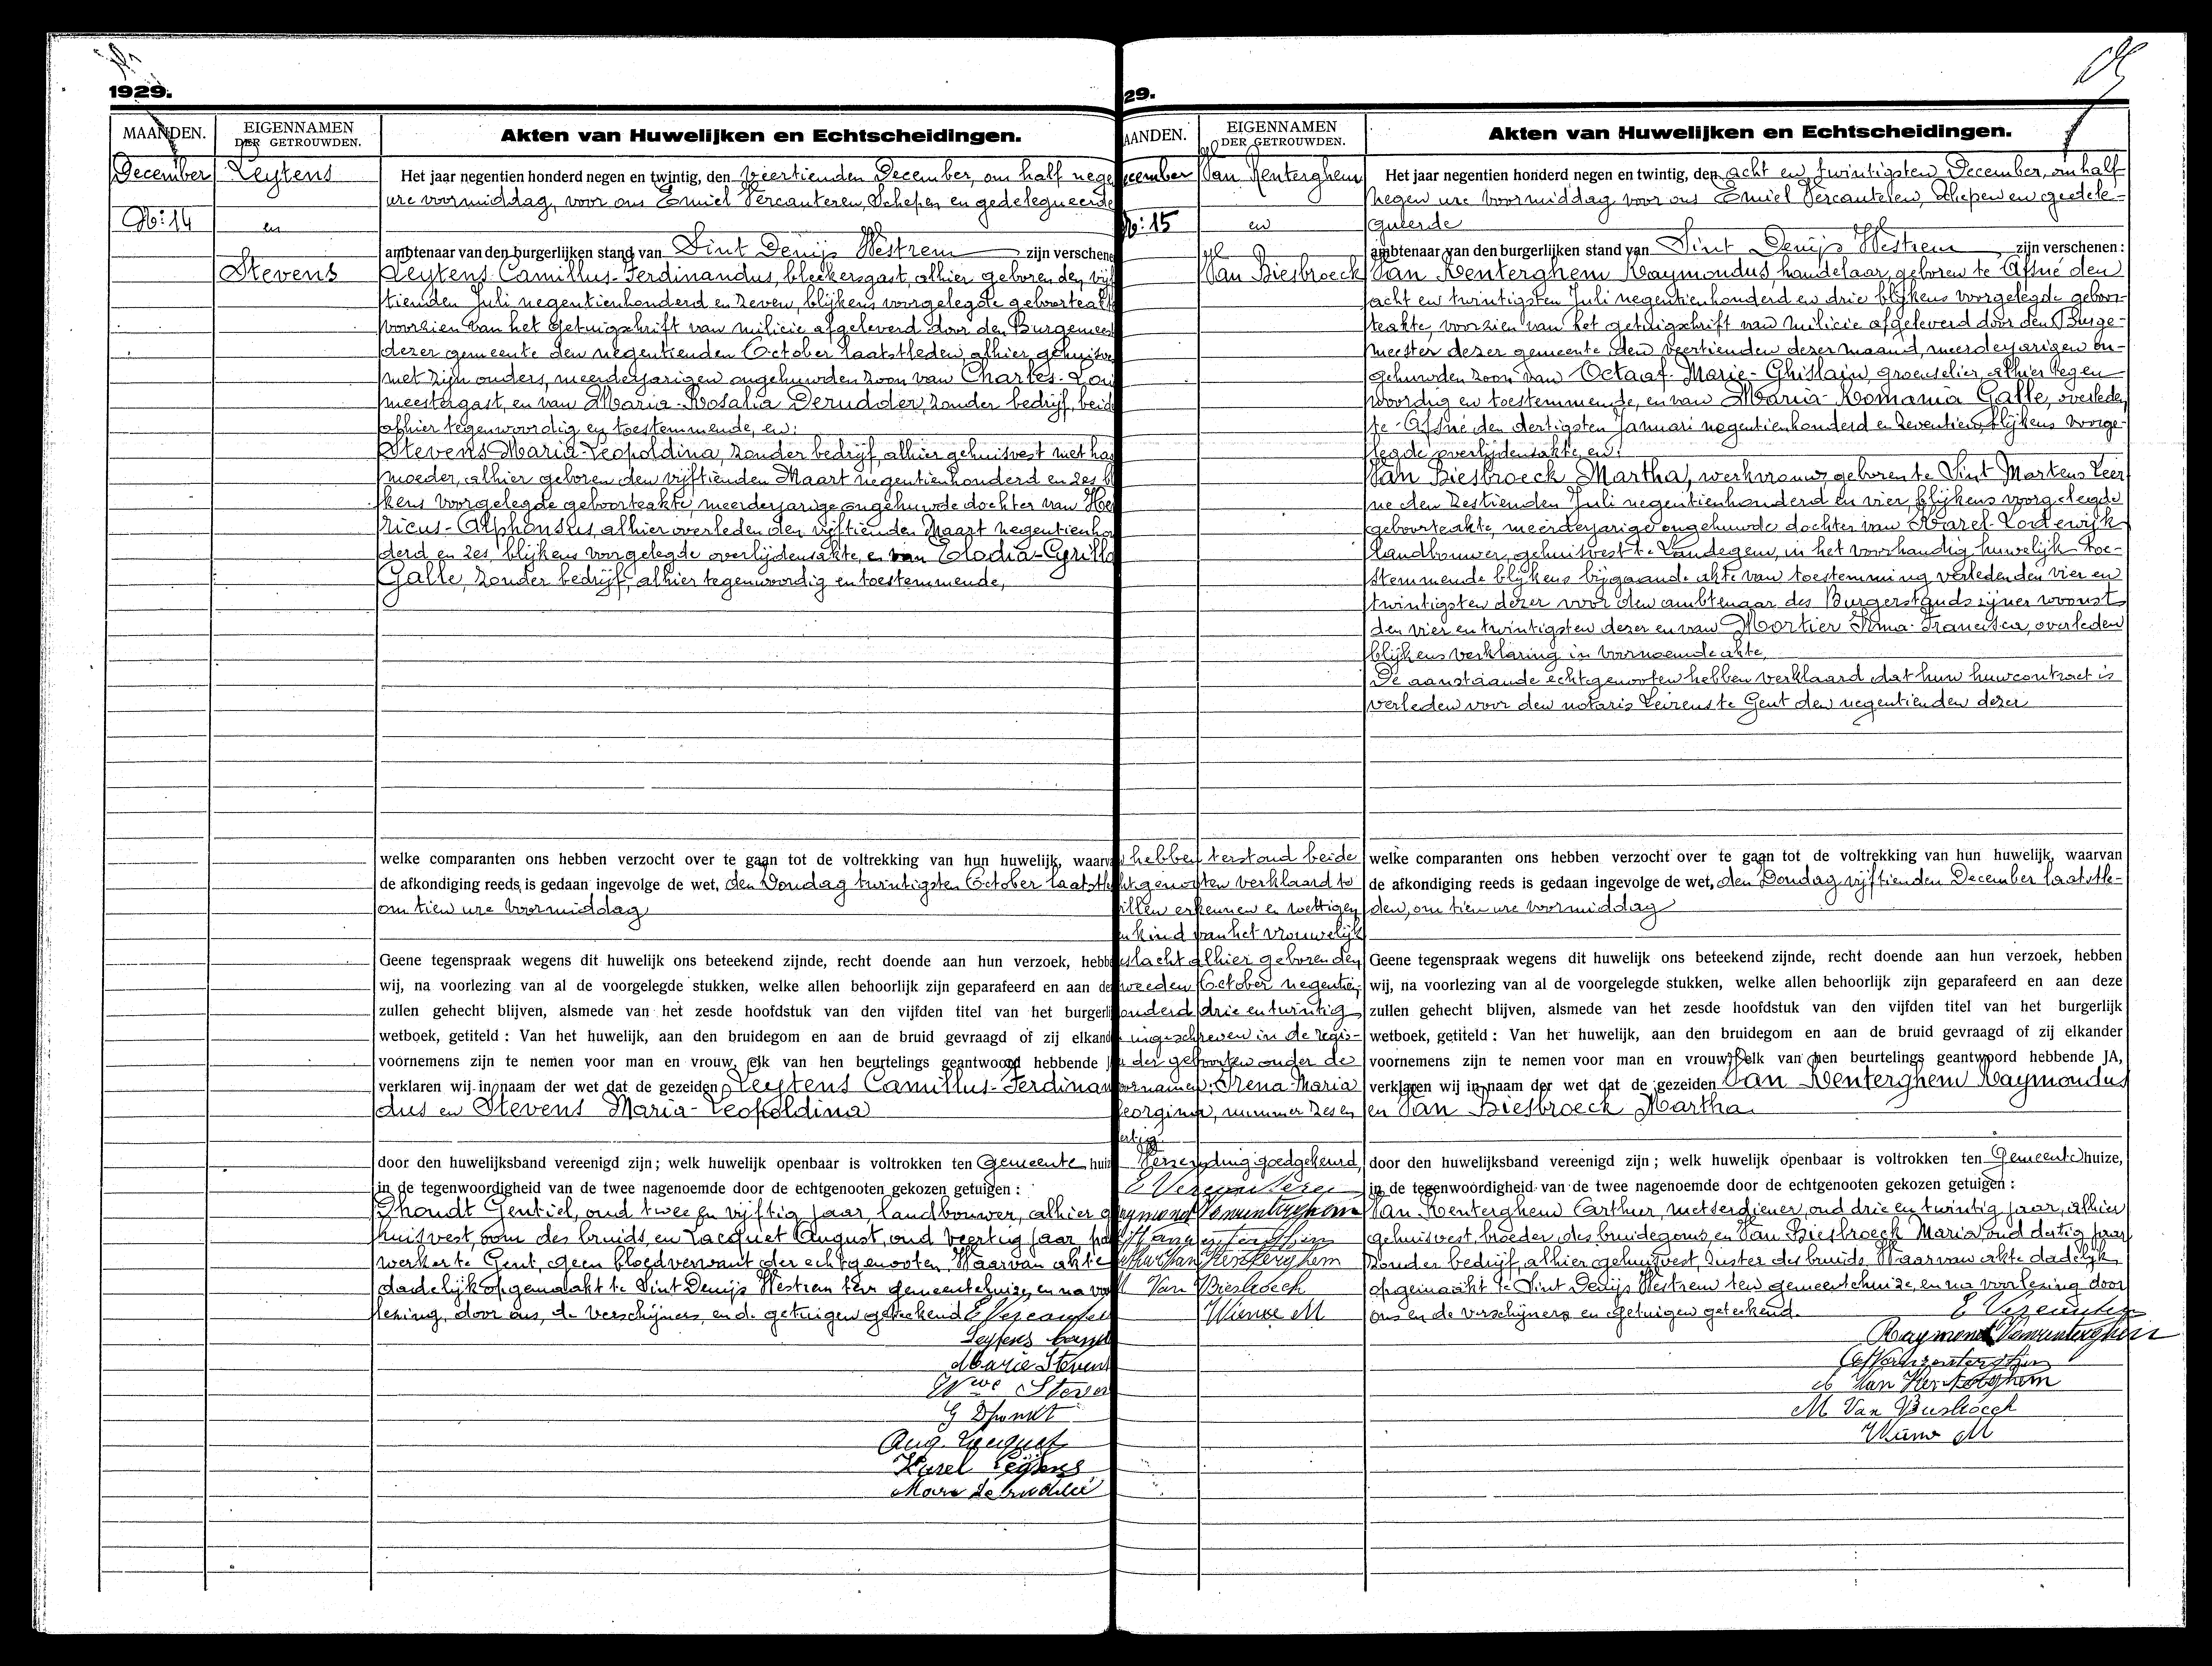 1929.
MAANDEN.
EIGENNAMEN
DER GETROUWDEN.
Akten van Huwelijken en Echtscheidingen.
December
Leytens
No: 14
en
Stevens
Het jaar negentien honderd negen en twintig, den veertienden December, om half nege
ure voormiddag, voor ons Emiel Vercauteren, Schepen en gedelegueerde
ambtenaar van den burgerlijken stand van Sint Denijs Westrem zijn verschene
Leytens Camillus-Ferdinandus, bleekersgast, alhier geboren den vijf
tienden Juli negentienhonderd en zeven, blijkens voorgelegde geboorteakt
voorzien van het getuigschrift van milicie afgeleverd door den Burgemees
dezer gemeente den negentienden October laatstleden, alhier gehuisve
met zijn ouders, meerderjarigen ongehuwden zoon van Charles-Lou
meestergast, en van Maria-Rosalia Derudder, zonder bedrijf, beid
alhier tegenwoordig en toestemmende, en:
Stevens Maria-Leopoldina, zonder bedrijf, alhier gehuisvest met ha
moeder, alhier geboren den vijftienden Maart negentienhonderd en zes bl
kens voorgelegde geboorteakte, meerderjarige ongehuwde dochter van He
ricus-Alphonsus, alhier overleden den vijftienden Maart negentienho
derd en zes blijkens voorgelegde overlijdensakte, en van Elodia-Cyrilla
Galle, zonder bedrijf, alhier tegenwoordig en toestemmende,
welke comparanten ons hebben verzocht over te gaan tot de voltrekking van hun huwelijk, waarva
de afkondiging reeds is gedaan ingevolge de wet, den Zondag twintigsten October laatstle
om tien ure voormiddag
Geene tegenspraak wegens dit huwelijk ons beteekend zijnde, recht doende aan hun verzoek, hebbe
wij, na voorlezing van al de voorgelegde stukken, welke allen behoorlijk zijn geparafeerd en aan de
zullen gehecht blijven, alsmede van het zesde hoofdstuk van den vijfden titel van het burgerli
wetboek, getiteld : Van het huwelijk, aan den bruidegom en aan de bruid gevraagd of zij elkand
voornemens zijn te nemen voor man en vrouw, elk van hen beurtelings geantwoord hebbende J
verklaren wij in naam der wet dat de gezeiden Leytens Camillus-Ferdinan
dus en Stevens Maria-Leopoldina
door den huwelijksband vereenigd zijn; welk huwelijk openbaar is voltrokken ten Gemeente huiz
in de tegenwoordigheid van de twee nagenoemde door de echtgenooten gekozen getuigen :
Dhondt Gentiel, oud twee en vijftig jaar, landbouwer, alhier g
huisvest, oom des bruids, en Lacquet August, oud veertig jaar
werker te Gent, geen bloedverwant der echtgenooten. Waarvan akte
dadelijk opgemaakt te Sint Denijs Westrem ten gemeentehuize, en na voo
lezing, door ons, de verschijners, en de getuigen geteekend
Marie Stevens
Wwe Steven
G Dhondt
Aug. Lacquet
Karel Leytens
29.
AANDEN.
EIGENNAMEN
DER GETROUWDEN.
Akten van Huwelijken en Echtscheidingen.
ecember
Van Renterghem
No: 15
en
Van Biesbroeck
hebben terstond beide
htgenooten verklaard te
illen erkennen en wettigen
n kind van het vrouwelijk
slacht alhier geboren den
weeden October negentien
onderd drie en twintig
ingeschreven in de regis-
der geboorten onder de
oornamen: Irena-Maria
eorgina, nummer zes en
ertig.
Verzending goedgekeurd
Arthur Van Renterghem
M Van Biesbroeck
Het jaar negentien honderd negen en twintig, den acht en twintigsten December, om half
negen ure voormiddag voor ons Emiel Vercauteren, Schepen en gedele-
gueerde
ambtenaar van den burgerlijken stand van Sint Denijs Westrem zijn verschenen :
Van Renterghem Raymondus, handelaar, geboren te Afsné den
acht en twintigsten Juli negentienhonderd en drie blijkens voorgelegde geboor-
teakte, voorzien van het getuigschrift van milicie afgeleverd door den Burge-
meester dezer gemeente, den veertienden dezer maand, meerderjarigen on-
gehuwden zoon van Octaaf-Marie-Ghislain, groenselier, alhier tegen
woordig en toestemmende, en van Maria-Romania Galle, overleden
te Afsné den dertigsten Januari negentienhonderd en zeventien, blijkens voorge-
legde overlijdensakte, en:
Van Biesbroeck Martha, werkvrouw, geboren te Sint Martens Leer
ne den zestienden Juli negentienhonderd en vier, blijkens voorgelegde
geboorteakte, meerderjarige ongehuwde dochter van Karel-Lodewijk
landbouwer, gehuisvest te Landegem, in het voorhandig huwelijk toe-
stemmende blijkens bijgaande akte van toestemming verleden den vier en
twintigsten dezer voor den ambtenaar des Burgerstands zijner woonst
den vier en twintigsten dezer en van Mortier Irma-Francisca, overleden
blijkens verklaring in voornoemde akte.
De aanstaande echtgenooten hebben verklaard dat hun huwcontract is
verleden voor den notaris Leirens te Gent den negentienden dezer
welke comparanten ons hebben verzocht over te gaan tot de voltrekking van hun huwelijk, waarvan
de afkondiging reeds is gedaan ingevolge de wet, den Zondag vijftienden December laatstle-
den, om tien ure voormiddag
Geene tegenspraak wegens dit huwelijk ons beteekend zijnde, recht doende aan hun verzoek, hebben
wij, na voorlezing van al de voorgelegde stukken, welke allen behoorlijk zijn geparafeerd en aan deze
zullen gehecht blijven, alsmede van het zesde hoofdstuk van den vijfden titel van het burgerlijk
wetboek, getiteld : Van het huwelijk, aan den bruidegom en aan de bruid gevraagd of zij elkander
voornemens zijn te nemen voor man en vrouw, elk van hen beurtelings geantwoord hebbende JA,
verklaren wij in naam der wet dat de gezeiden Van Renterghem Raymondus
en Van Biesbroeck Martha
door den huwelijksband vereenigd zijn ; welk huwelijk openbaar is voltrokken ten Gemeente huize,
in de tegenwoordigheid van de twee nagenoemde door de echtgenooten gekozen getuigen :
Van Renterghem Arthur, metserdiener, oud drie en twintig jaar, alhier
gehuisvest, broeder des bruidegoms, en Van Biesbroeck Maria, oud dertig jaar
zonder bedrijf, alhier gehuisvest, zuster des bruids. Waarvan akte dadelijk
opgemaakt te Sint Denijs Westrem ten gemeentehuize, en na voorlezing door
ons en de verschijners en getuigen geteekend.
Raymond Vanrenterghem
A Van Renterghem
M Van Biesbroeck